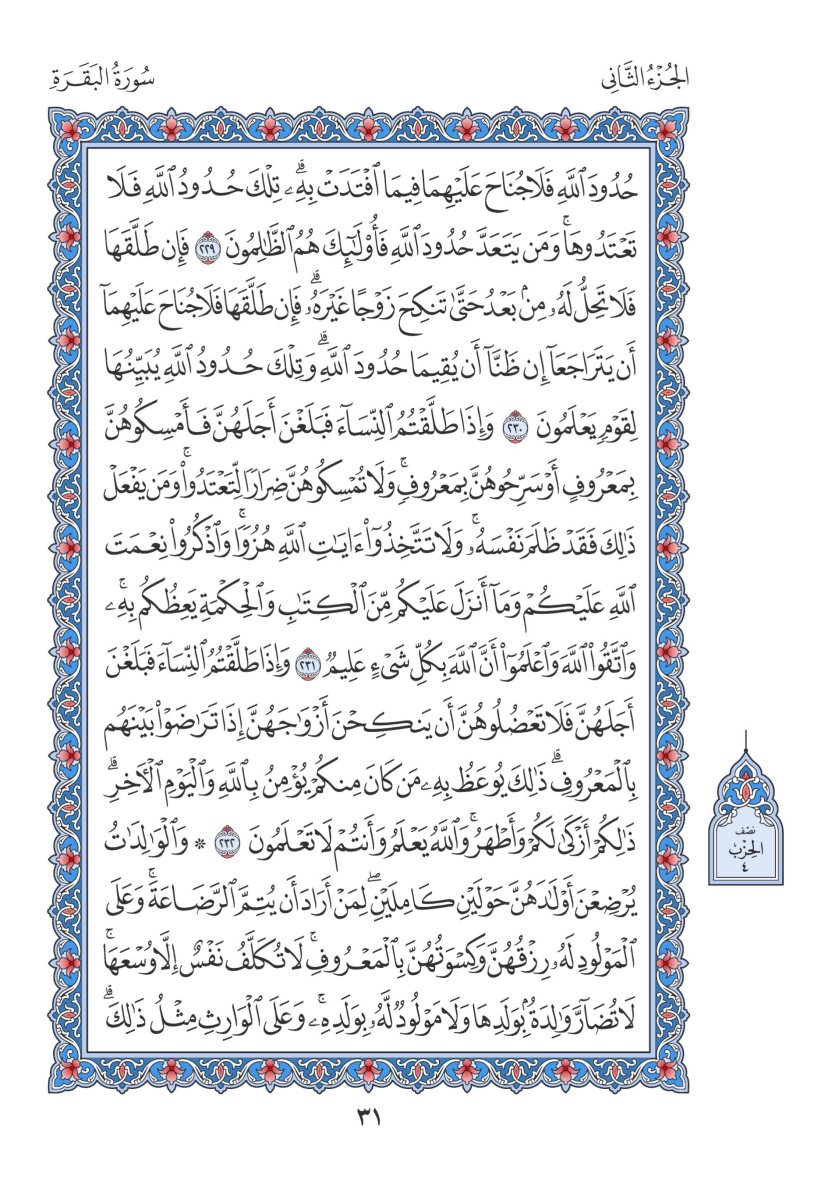 الجُزْءُ الثَّانِى
سُورَةُ البَقَرَةِ
حُدُودَ ٱللَّهِ فَلَا جُنَاحَ عَلَيْهِمَا فِيمَا ٱفْتَدَتْ بِهِۦۗ تِلْكَ حُدُودُ ٱللَّهِ فَلَا
تَعْتَدُوهَاۚ وَمَن يَتَعَدَّ حُدُودَ ٱللَّهِ فَأُو۟لَـٰٓئِكَ هُمُ ٱلظَّـٰلِمُونَ ٢٢٩ فَإِن طَلَّقَهَا
فَلَا تَحِلُّ لَهُۥ مِنۢ بَعْدُ حَتَّىٰ تَنكِحَ زَوْجًا غَيْرَهُۥۗ فَإِن طَلَّقَهَا فَلَا جُنَاحَ عَلَيْهِمَآ
أَن يَتَرَاجَعَآ إِن ظَنَّآ أَن يُقِيمَا حُدُودَ ٱللَّهِۗ وَتِلْكَ حُدُودُ ٱللَّهِ يُبَيِّنُهَا
لِقَوْمٍ يَعْلَمُونَ ٢٣٠ وَإِذَا طَلَّقْتُمُ ٱلنِّسَآءَ فَبَلَغْنَ أَجَلَهُنَّ فَأَمْسِكُوهُنَّ
بِمَعْرُوفٍ أَوْ سَرِّحُوهُنَّ بِمَعْرُوفٍۚ وَلَا تُمْسِكُوهُنَّ ضِرَارًا لِّتَعْتَدُوا۟ۚ وَمَن يَفْعَلْ
ذَٰلِكَ فَقَدْ ظَلَمَ نَفْسَهُۥۚ وَلَا تَتَّخِذُوٓا۟ ءَايَـٰتِ ٱللَّهِ هُزُوًاۚ وَٱذْكُرُوا۟ نِعْمَتَ
ٱللَّهِ عَلَيْكُمْ وَمَآ أَنزَلَ عَلَيْكُم مِّنَ ٱلْكِتَـٰبِ وَٱلْحِكْمَةِ يَعِظُكُم بِهِۦۚ
وَٱتَّقُوا۟ ٱللَّهَ وَٱعْلَمُوٓا۟ أَنَّ ٱللَّهَ بِكُلِّ شَىْءٍ عَلِيمٌ ٢٣١ وَإِذَا طَلَّقْتُمُ ٱلنِّسَآءَ فَبَلَغْنَ
أَجَلَهُنَّ فَلَا تَعْضُلُوهُنَّ أَن يَنكِحْنَ أَزْوَٰجَهُنَّ إِذَا تَرَٰضَوْا۟ بَيْنَهُم
بِٱلْمَعْرُوفِۗ ذَٰلِكَ يُوعَظُ بِهِۦ مَن كَانَ مِنكُمْ يُؤْمِنُ بِٱللَّهِ وَٱلْيَوْمِ ٱلْـَٔاخِرِۗ
ذَٰلِكُمْ أَزْكَىٰ لَكُمْ وَأَطْهَرُۚ وَٱللَّهُ يَعْلَمُ وَأَنتُمْ لَا تَعْلَمُونَ ٢٣٢ * وَٱلْوَٰلِدَٰتُ
يُرْضِعْنَ أَوْلَـٰدَهُنَّ حَوْلَيْنِ كَامِلَيْنِۖ لِمَنْ أَرَادَ أَن يُتِمَّ ٱلرَّضَاعَةَۚ وَعَلَى
ٱلْمَوْلُودِ لَهُۥ رِزْقُهُنَّ وَكِسْوَتُهُنَّ بِٱلْمَعْرُوفِۚ لَا تُكَلَّفُ نَفْسٌ إِلَّا وُسْعَهَاۚ
لَا تُضَآرَّ وَٰلِدَةٌۢ بِوَلَدِهَا وَلَا مَوْلُودٌ لَّهُۥ بِوَلَدِهِۦۚ وَعَلَى ٱلْوَارِثِ مِثْلُ ذَٰلِكَۗ
نصف
الحزب
٤
٣١